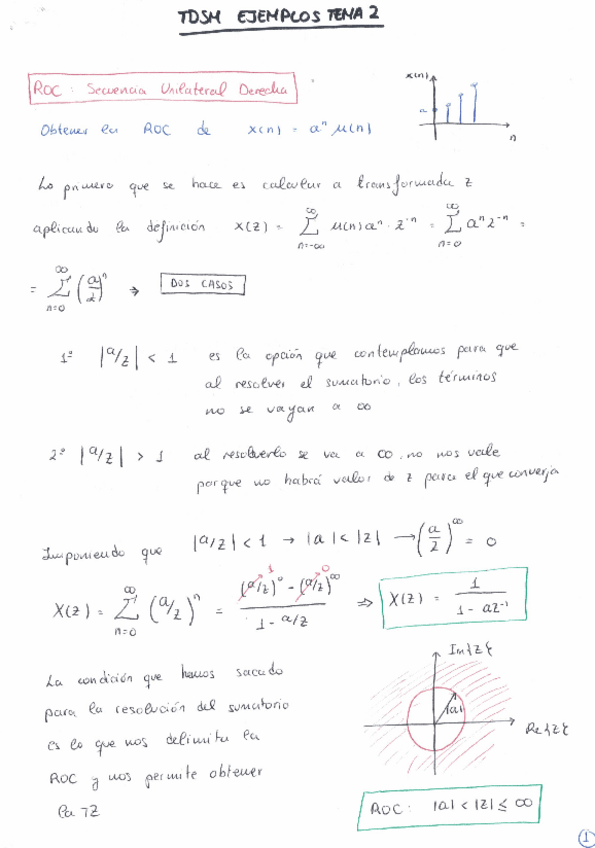 TDSM EJEMPLOS TEMA 2
ROC: Secuencia Unilateral Derecha
x(n)
n
Obtener la ROC de x(n) = aⁿ μ(n)
Lo primero que se hace es calcular a transformada z
aplicando la definición X(z) = Σ_{n=-∞}^{∞} μ(n) aⁿ · z⁻ⁿ = Σ_{n=0}^{∞} aⁿ z⁻ⁿ =
= Σ_{n=0}^{∞} (a/z)ⁿ → DOS CASOS
1º |a/z| < 1 es la opción que contemplamos para que
al resolver el sumatorio, los términos
no se vayan a ∞
2º |a/z| > 1 al resolverlo se va a ∞, no nos vale
porque no habrá valor de z para el que converja
Imponiendo que |a/z| < 1 → |a| < |z| → (a/z)^∞ = 0
X(z) = Σ_{n=0}^{∞} (a/z)ⁿ = ((a/z)⁰ - (a/z)^∞) / (1 - a/z) ⇒ X(z) = 1 / (1 - az⁻¹)
1 0
La condición que hemos sacado
para la resolución del sumatorio
es lo que nos delimita la
ROC y nos permite obtener
la TZ
Im{z}
|a|
Re{z}
ROC: |a| < |z| ≤ ∞
1